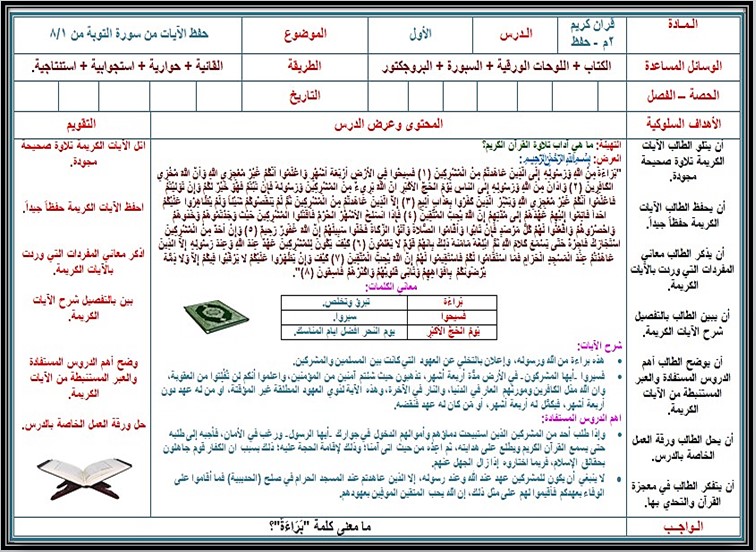 المـادة
قرآن كريم
٢م - حفظ
الدرس
الأول
الموضوع
حفظ الآيات من سورة التوبة من ٨/١
الوسائل المساعدة
الكتاب + اللوحات الورقية + السبورة + البروجكتور
الطريقة
القائية + حوارية + استجوابية + استنتاجية.
الحصة – الفصل
التاريخ
الأهداف السلوكية
المحتوى وعرض الدرس
التقويم
أن يتلو الطالب الآيات
الكريمة تلاوة صحيحة
مجودة.
أن يحفظ الطالب الآيات
الكريمة حفظاً جيداً.
أن يذكر الطالب معاني
المفردات التي وردت بالآيات
الكريمة.
أن يبين الطالب بالتفصيل
شرح الآيات الكريمة.
أن يوضح الطالب أهم
الدروس المستفادة والعبر
المستنبطة من الآيات
الكريمة.
أن يحل الطالب ورقة العمل
الخاصة بالدرس.
أن يتفكر الطالب في معجزة
القرآن والتحدي بها.
التهيئة: ما هي آداب تلاوة القرآن الكريم؟
العرض: بسم الله الرحمن الرحيم:
"بَرَاءَةٌ مِنَ اللَّهِ وَرَسُولِهِ إِلَى الَّذِينَ عَاهَدْتُمْ مِنَ الْمُشْرِكِينَ (١) فَسِيحُوا فِي الْأَرْضِ أَرْبَعَةَ أَشْهُرٍ وَاعْلَمُوا أَنَّكُمْ غَيْرُ مُعْجِزِي اللَّهِ وَأَنَّ اللَّهَ مُخْزِي
الْكَافِرِينَ (٢) وَأَذَانٌ مِنَ اللَّهِ وَرَسُولِهِ إِلَى النَّاسِ يَوْمَ الْحَجِّ الْأَكْبَرِ أَنَّ اللَّهَ بَرِيءٌ مِنَ الْمُشْرِكِينَ وَرَسُولُهُ فَإِنْ تُبْتُمْ فَهُوَ خَيْرٌ لَكُمْ وَإِنْ تَوَلَّيْتُمْ
فَاعْلَمُوا أَنَّكُمْ غَيْرُ مُعْجِزِي اللَّهِ وَبَشِّرِ الَّذِينَ كَفَرُوا بِعَذَابٍ أَلِيمٍ (٣) إِلَّا الَّذِينَ عَاهَدْتُمْ مِنَ الْمُشْرِكِينَ ثُمَّ لَمْ يَنْقُصُوكُمْ شَيْئًا وَلَمْ يُظَاهِرُوا عَلَيْكُمْ
أَحَدًا فَأَتِمُّوا إِلَيْهِمْ عَهْدَهُمْ إِلَى مُدَّتِهِمْ إِنَّ اللَّهَ يُحِبُّ الْمُتَّقِينَ (٤) فَإِذَا انْسَلَخَ الْأَشْهُرُ الْحُرُمُ فَاقْتُلُوا الْمُشْرِكِينَ حَيْثُ وَجَدْتُمُوهُمْ وَخُذُوهُمْ
وَاحْصُرُوهُمْ وَاقْعُدُوا لَهُمْ كُلَّ مَرْصَدٍ فَإِنْ تَابُوا وَأَقَامُوا الصَّلَاةَ وَآتَوُا الزَّكَاةَ فَخَلُّوا سَبِيلَهُمْ إِنَّ اللَّهَ غَفُورٌ رَحِيمٌ (٥) وَإِنْ أَحَدٌ مِنَ الْمُشْرِكِينَ
اسْتَجَارَكَ فَأَجِرْهُ حَتَّى يَسْمَعَ كَلَامَ اللَّهِ ثُمَّ أَبْلِغْهُ مَأْمَنَهُ ذَلِكَ بِأَنَّهُمْ قَوْمٌ لَا يَعْلَمُونَ (٦) كَيْفَ يَكُونُ لِلْمُشْرِكِينَ عَهْدٌ عِنْدَ اللَّهِ وَعِنْدَ رَسُولِهِ إِلَّا الَّذِينَ
عَاهَدْتُمْ عِنْدَ الْمَسْجِدِ الْحَرَامِ فَمَا اسْتَقَامُوا لَكُمْ فَاسْتَقِيمُوا لَهُمْ إِنَّ اللَّهَ يُحِبُّ الْمُتَّقِينَ (٧) كَيْفَ وَإِنْ يَظْهَرُوا عَلَيْكُمْ لَا يَرْقُبُوا فِيكُمْ إِلًّا وَلَا ذِمَّةً
يُرْضُونَكُمْ بِأَفْوَاهِهِمْ وَتَأْبَى قُلُوبُهُمْ وَأَكْثَرُهُمْ فَاسِقُونَ (٨)".
معاني الكلمات:
بَرَاءَة
تبرؤ وتخلص.
فسيحوا
سيروا.
يَوْمَ الْحَجِّ الْأَكْبَرِ
يوم النحر أفضل أيام المناسك.
شرح الآيات:
• هذه براءة من الله ورسوله، وإعلان بالتخلي عن العهود التي كانت بين المسلمين والمشركين.
• فسيروا -أيها المشركون- في الأرض مدَّة أربعة أشهر، تذهبون حيث شئتم آمنين من المؤمنين، واعلموا أنكم لن تُفْلِتوا من العقوبة،
وأن الله مذل الكافرين ومورثهم العار في الدنيا، والنار في الآخرة، وهذه الآية لذوي العهود المطلقة غير المؤقتة، أو من له عهد دون
أربعة أشهر، فيكمَّل له أربعة أشهر، أو مَن كان له عهد فنقضه.
أهم الدروس المستفادة:
• وإذا طلب أحد من المشركين الذين استبيحت دماؤهم وأموالهم الدخول في جوارك -أيها الرسول- ورغب في الأمان، فأجبه إلى طلبه
حتى يسمع القرآن الكريم ويطلع على هدايته، ثم أعِدْه من حيث أتى آمنًا؛ وذلك لإقامة الحجة عليه؛ ذلك بسبب أن الكفار قوم جاهلون
بحقائق الإسلام، فربما اختاروه إذا زال الجهل عنهم.
• لا ينبغي أن يكون للمشركين عهد عند الله وعند رسوله، إلا الذين عاهدتم عند المسجد الحرام في صلح (الحديبية) فما أقاموا على
الوفاء بعهدكم فأقيموا لهم على مثل ذلك، إن الله يحب المتقين الموفِّين بعهودهم.
اتل الآيات الكريمة تلاوة صحيحة
مجودة.
احفظ الآيات الكريمة حفظاً جيداً.
اذكر معاني المفردات التي وردت
بالآيات الكريمة.
بين بالتفصيل شرح الآيات
الكريمة.
وضح أهم الدروس المستفادة
والعبر المستنبطة من الآيات
الكريمة.
حل ورقة العمل الخاصة بالدرس.
الـواجـب
ما معنى كلمة "بَرَاءَةٌ"؟